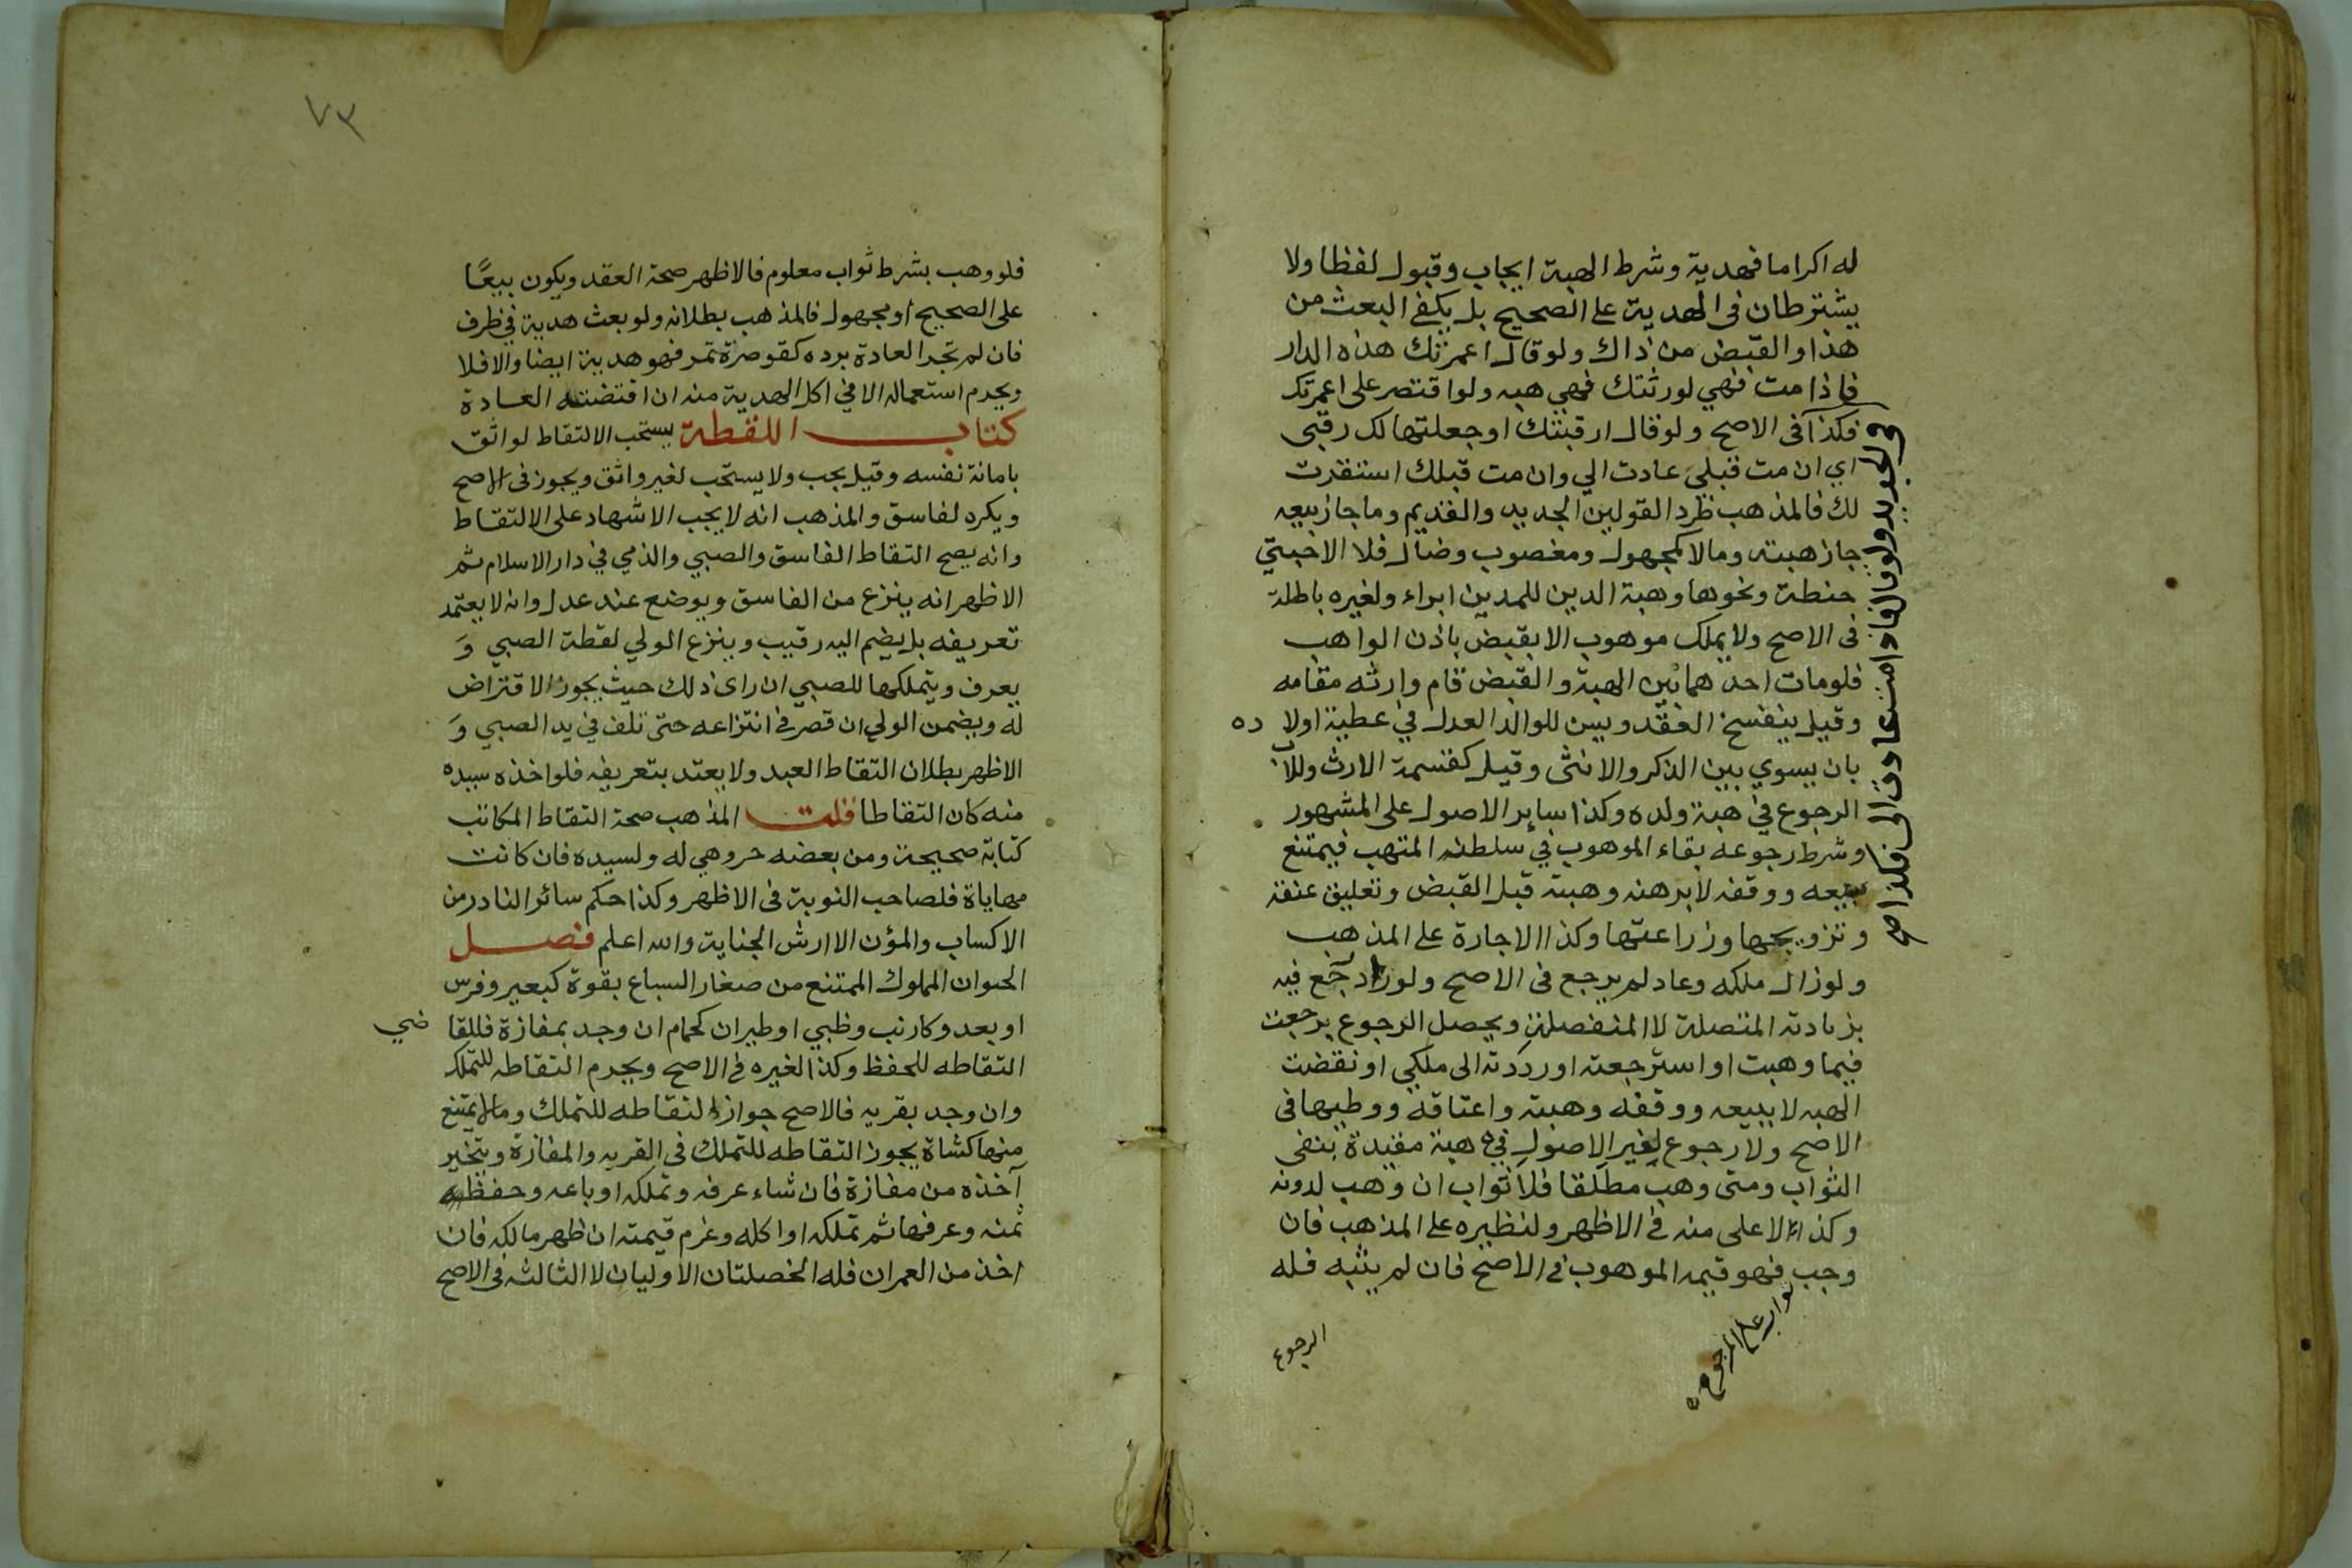 له اكراما فهدية وشرط الهبة ايجاب وقبول لفظا ولا
يشترطان فى الهدية على الصحيح بل يكفي البعث من
هذا والقبض من ذاك ولو قال اعمرتك هذه الدار
فاذا مت فهي لورثتك فهي هبه ولو اقتصر على اعمرتك
فكذا فى الاصح ولو قال ارقبتك او جعلتها لك رقبى
اي ان مت قبلي عادت الي وان مت قبلك استقرت
لك فالمذهب طرد القولين الجديد والقديم وما جاز بيعه
جاز هبته ومالا كمجهول ومغصوب وضال فلا الا حبتي
حنطة ونحوها وهبة الدين للمدين ابراء ولغيره باطلة
فى الاصح ولا يملك موهوب الا بقبض باذن الواهب
فلو مات احدهما بين الهبة والقبض قام وارثه مقامه
وقيل ينفسخ العقد ويسن للوالد العدل في عطية اولاده
بان يسوي بين الذكر والانثى وقيل كقسمة الارث وللاب
الرجوع في هبة ولده وكذا ساير الاصول على المشهور
وشرط رجوعه بقاء الموهوب في سلطنه المتهب فيمتنع
ببيعه ووقفه لا برهنه وهبته قبل القبض وتعليق عتقه
وتزويجها وزراعتها وكذا الاجارة على المذهب
ولو زال ملكه وعاد لم يرجع فى الاصح ولو زاد رجع فيه
بزيادته المتصلة لا المنفصلة ويحصل الرجوع برجعت
فيما وهبت او استرجعته او رددته الى ملكي او نقضت
الهبه لا ببيعه ووقفه وهبته واعتاقه ووطيها فى
الاصح ولا رجوع لغير الاصول في هبة مقيدة بنفى
الثواب ومتى وهب مطلقا فلا ثواب ان وهب لدونه
وكذا الاعلى منه في الاظهر ولنظيره على المذهب فان
وجب فهو قيمه الموهوب في الاصح فان لم يثبه فله
الرجوع
في الجديد ولو قال فاذا مت عادت الي فكذا صح
فلو وهب بشرط ثواب معلوم فالاظهر صحة العقد ويكون بيعًا
على الصحيح او مجهول فالمذهب بطلانه ولو بعث هدية في ظرف
فان لم تجر العادة برده كقوصرة تمر فهو هدية ايضا والا فلا
ويحرم استعماله الا في اكل الهدية منه ان اقتضته العادة
كتاب اللقطة يستحب الالتقاط لواثق
بامانة نفسه وقيل يجب ولا يستحب لغير واثق ويجوز فى الاصح
ويكره لفاسق والمذهب انه لا يجب الاشهاد على الالتقاط
وانه يصح التقاط الفاسق والصبي والذمي في دار الاسلام ثم
الاظهر انه ينزع من الفاسق ويوضع عند عدل وانه لا يعتمد
تعريفه بل يضم اليه رقيب وينزع الولي لقطة الصبي وَ
يعرف ويتملكها للصبي ان راى ذلك حيث يجوز الاقتراض
له ويضمن الولي ان قصر في انتزاعه حتى تلف في يد الصبي وَ
الاظهر بطلان التقاط العبد ولا يعتد بتعريفه فلو اخذه سيده
منه كان التقاطا قلت المذهب صحة التقاط المكاتب
كتابة صحيحة ومن بعضه حر وهي له ولسيده فان كانت
مهاياة فلصاحب النوبة فى الاظهر وكذا حكم سائر النادر من
الاكساب والمؤن الا ارش الجناية والله اعلم فصل
الحيوان المملوك الممتنع من صغار السباع بقوة كبعير وفرس
او بعدو كارنب وظبي او طيران كحمام ان وجد بمفازة فللقاضي
التقاطه للحفظ وكذا لغيره في الاصح ويحرم التقاطه للتملك
وان وجد بقريه فالاصح جواز التقاطه للتملك وما لا يمتنع
منها كشاة يجوز التقاطه للتملك فى القريه والمفازة ويتخير
آخذه من مفازة فان شاء عرفه وتملكه او باعه وحفظ
ثمنه وعرفها ثم تملكه او اكله وغرم قيمته ان ظهر مالكه فان
اخذ من العمران فله الخصلتان الاوليان لا الثالثه فى الاصح
٧٣